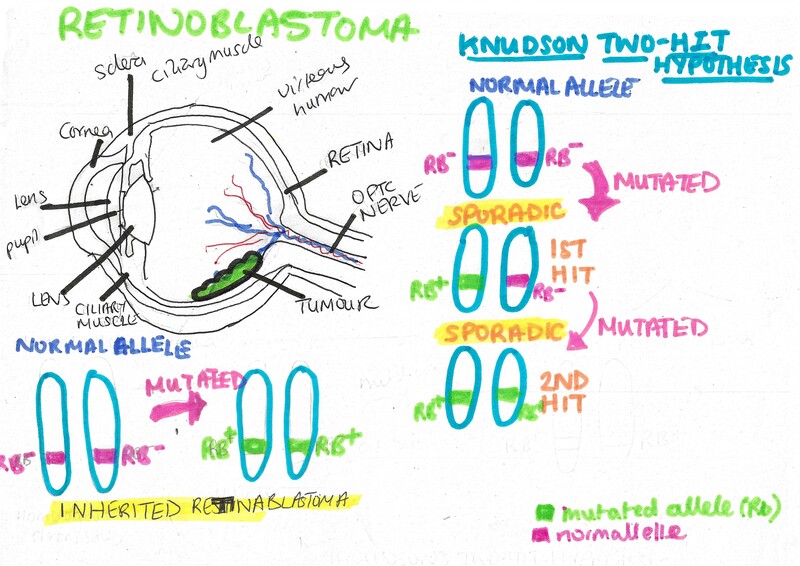 RETINOBLASTOMA
sclera
ciliary muscle
vitreous
humour
cornea
RETINA
OPTC
NERVE
Lens
pupil
LENS
CILIARY
MUSCLE
TUMOUR
NORMAL ALLELE
MUTATED
RB-
RB-
RB+
RB+
INHERITED RETINABLASTOMA
KNUDSON TWO-HIT
HYPOTHESIS
NORMAL ALLELE
RB-
RB-
MUTATED
SPORADIC
1ST
HIT
RB+
RB-
MUTATED
SPORADIC
2ND
HIT
RB+
RB+
mutated allele (Rb)
normallelle